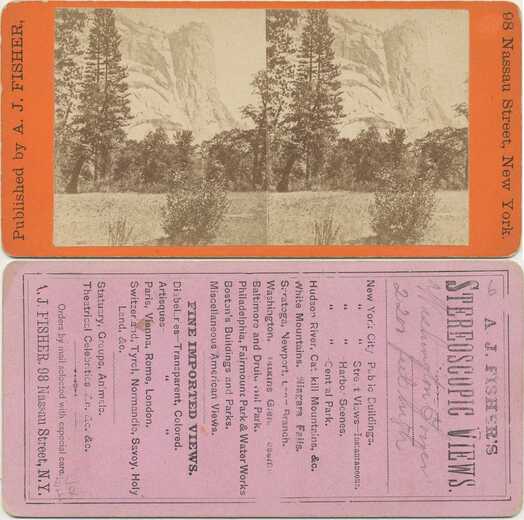 Published by A. J. FISHER,
98 Nassau Street, New York.
A. J. FISHER'S
STEREOSCOPIC VIEWS.
New York City Public Buildings,
" " Street Views—Instantaneous.
" " Harbor Scenes.
" " Central Park.
Hudson River, Catskill Mountains, &c.
White Mountains. Niagara Falls.
Saratoga, Newport, Long Branch.
Washington, Watkins Glen,
Baltimore and Druid Hill Park.
Philadelphia, Fairmount Park & Water Works
Boston's Buildings and Parks.
Miscellaneous American Views.
FINE IMPORTED VIEWS.
Transparent Colored.
Artisques " "
Paris, Vienna, Rome, London,
Switzerland, Tyrol, Normandie, Savoy, Holy
Land, &c.
Statuary, Groups, Animals.
Theatrical Celebrities &c. &c.
Orders by mail selected with especial care.
A. J. FISHER, 98 Nassau Street, N.Y.